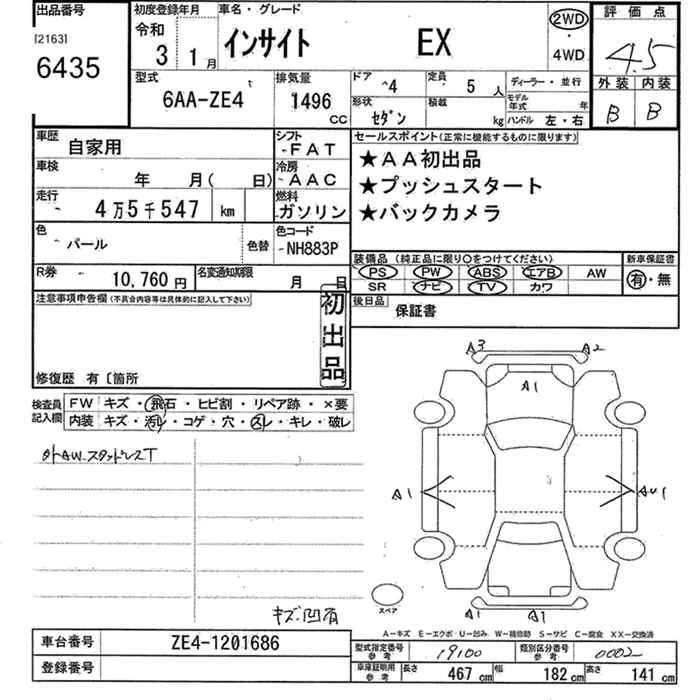 出品番号
[2163]
6435
初度登録年月
令和
3 1月
車名・グレード
インサイト EX
2WD
・
4WD
評価点
4.5
外装 内装
B B
型式
6AA-ZE4
排気量
1496 CC
ドア 4
定員 5 人
形状 セダン
積載 kg
ディーラー・並行
モデル年式 年
ハンドル 左・右
車歴 自家用
シフト FAT
車検 年 月( 日)
冷房 AAC
走行 4万5千547 km
燃料 ガソリン
色 パール
色替
色コード NH883P
R券 10,760円
名変通知期限 月 日
セールスポイント(正常に機能するものに限ります)
★AA初出品
★プッシュスタート
★バックカメラ
装備品(純正品に限り○をつけてください)
新車保証書
PS PW ABS エアB AW
SR ナビ TV カワ
有・無
後日品 保証書
注意事項申告欄(不具合内容等は具体的に記入して下さい)
初出品
修復歴 有〔箇所
検査員記入欄
FW キズ・飛石・ヒビ割・リペア跡・×要
内装 キズ・汚レ・コゲ・穴・スレ・キレ・破レ
外AW.スタッドレスT
キズ凹有
A3 A2
A1
A1 AU1
A1 A1
スペア
A−キズ E−エクボ U−凹み W−補修跡 S−サビ C−腐食 XX−交換済
車台番号 ZE4-1201686
登録番号
型式指定番号参考 19100
類別区分番号参考 0002
車庫証明用参考 長さ 467 cm 幅 182 cm 高さ 141 cm